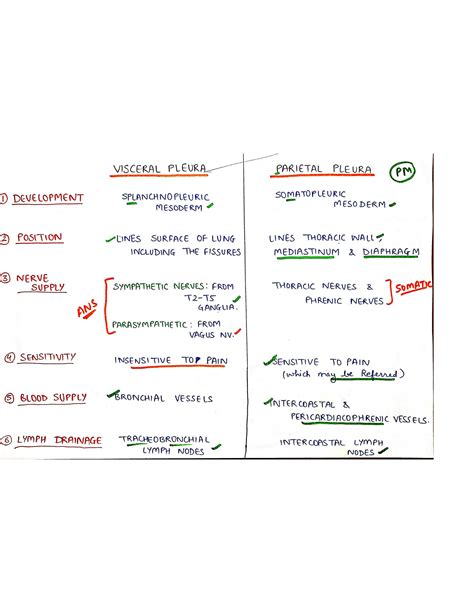 VISCERAL PLEURA PARIETAL PLEURA PM
① DEVELOPMENT SPLANCHNOPLEURIC SOMATOPLEURIC
MESODERM MESODERM
② POSITION LINES SURFACE OF LUNG LINES THORACIC WALL,
INCLUDING THE FISSURES MEDIASTINUM & DIAPHRAGM
③ NERVE SYMPATHETIC NERVES: FROM THORACIC NERVES & SOMATIC
SUPPLY T2-T5 PHRENIC NERVES
ANS GANGLIA.
PARASYMPATHETIC: FROM
VAGUS NV.
④ SENSITIVITY INSENSITIVE TO PAIN SENSITIVE TO PAIN
(which may be Referred)
⑤ BLOOD SUPPLY BRONCHIAL VESSELS INTERCOASTAL &
PERICARDIACOPHRENIC VESSELS.
⑥ LYMPH DRAINAGE TRACHEOBRONCHIAL INTERCOASTAL LYMPH
LYMPH NODES NODES